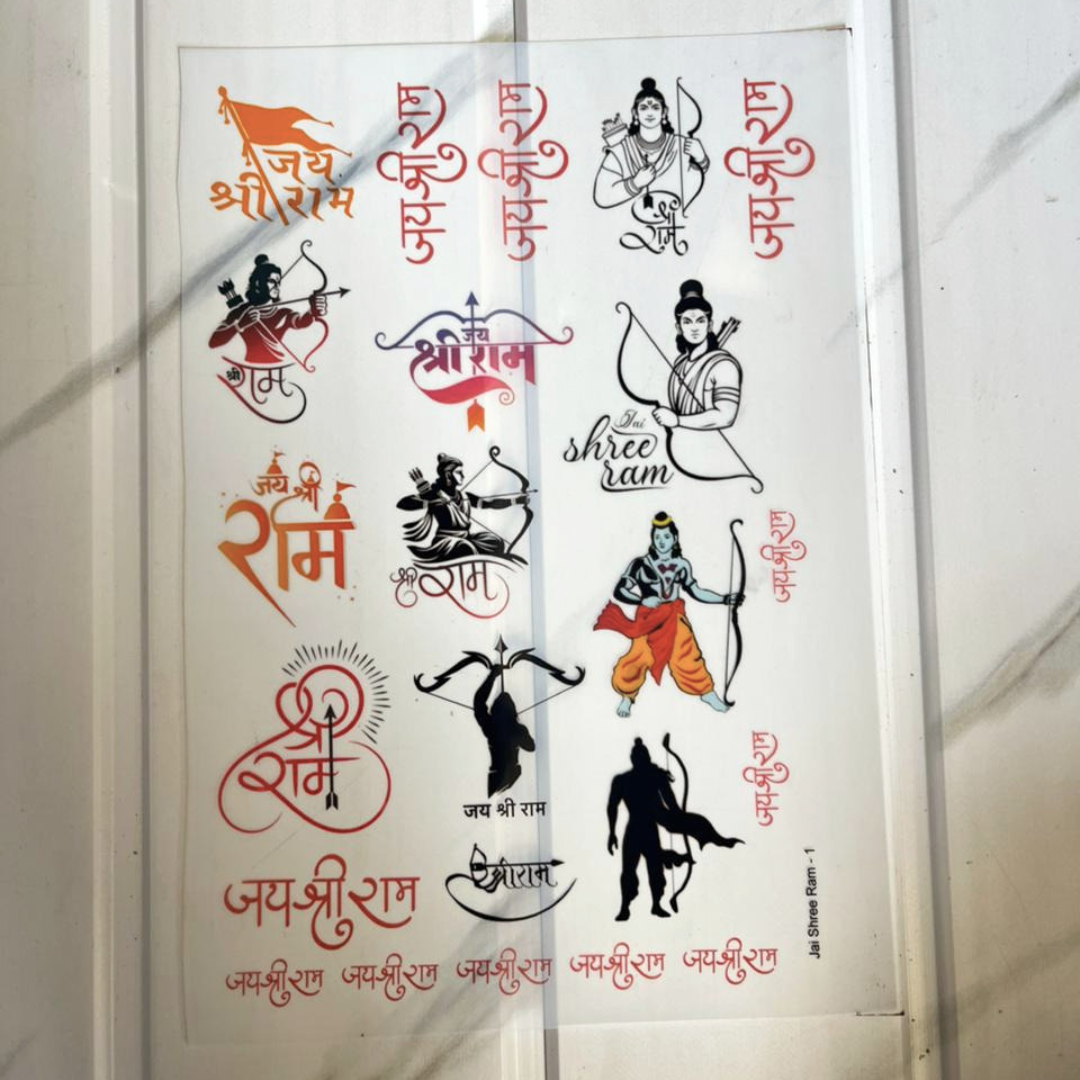 जय
श्री राम
जय श्री राम
जय श्री राम
श्री
राम
जय श्री राम
श्री राम
जय
श्री राम
Jai
shree
ram
जय श्री
राम
श्री राम
जय श्री राम
श्री
राम
जय श्री राम
जय श्री राम
जय श्री राम
श्री राम
Jai Shree Ram - 1
जय श्री राम जय श्री राम जय श्री राम जय श्री राम जय श्री राम